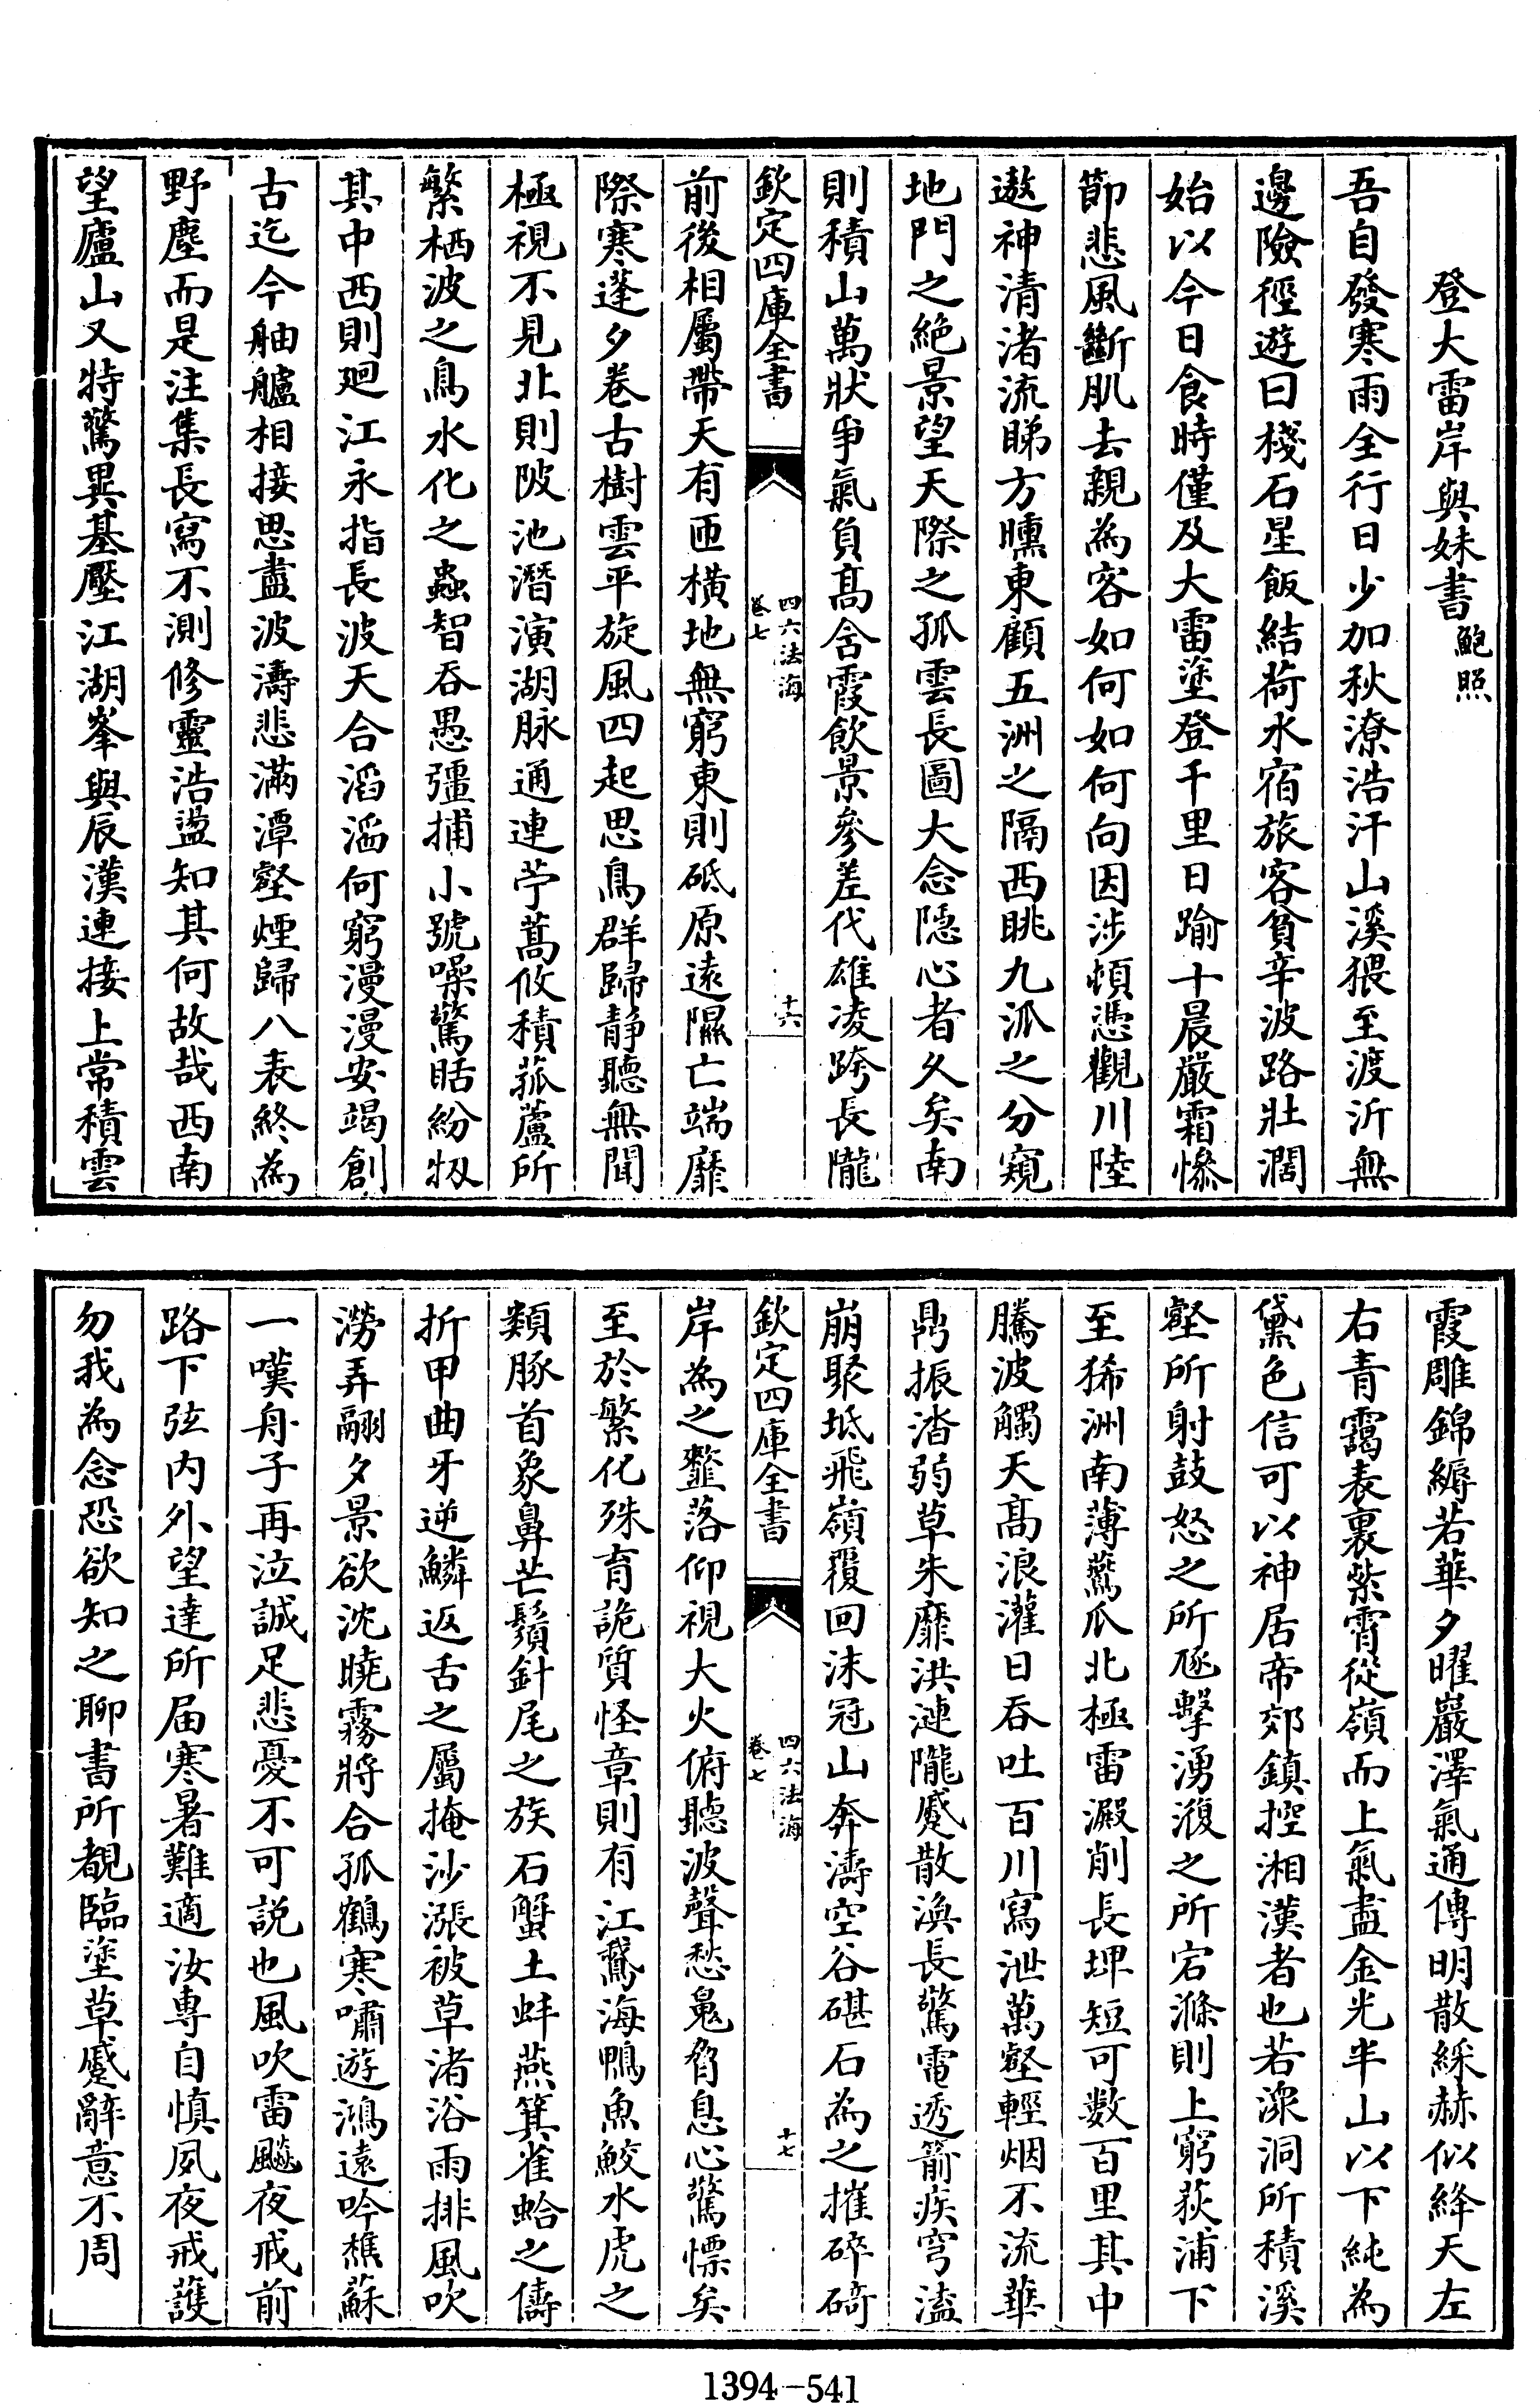 登大雷岸與妹書鮑照
吾自發寒雨全行日少加秋潦浩汗山溪猥至渡沂無
邊險徑遊曰棧石星飯結荷水宿旅客貧辛波路壯濶
始以今日食時僅及大雷塗登千里日踰十晨嚴霜慘
節悲風斷肌去親為客如何如何向因涉頓憑觀川陸
遨神清渚流睇方曛東顧五洲之隔西眺九派之分窺
地門之絶景望天際之孤雲長圖大念隱心者久矣南
則積山萬狀爭氣負髙含霞飲景參差代雄凌跨長隴
欽定四庫全書
四六法海
卷七
十六
前後相屬帶天有匝橫地無窮東則砥原遠隰亡端靡
際寒蓬夕卷古樹雲平旋風四起思鳥群歸静聽無聞
極視不見北則陂池潛演湖脉通連苧蒿攸積菰蘆所
繁栖波之鳥水化之蟲智吞愚彊捕小號噪驚聒紛牣
其中西則廻江永指長波天合滔滔何窮漫漫安竭創
古迄今舳艫相接思盡波濤悲滿潭壑煙歸八表終為
野塵而是注集長寫不測修靈浩盪知其何故哉西南
望廬山又特驚異基壓江湖峯與辰漢連接上常積雲
霞雕錦縟若華夕曜巖澤氣通傳明散綵赫似絳天左
右青靄表裏紫霄從嶺而上氣盡金光半山以下純為
黛色信可以神居帝郊鎮控湘漢者也若潨洞所積溪
壑所射鼓怒之所豗擊湧澓之所宕滌則上窮荻浦下
至狶洲南薄鷰爪北極雷澱削長埤短可數百里其中
騰波觸天髙浪灌日吞吐百川寫泄萬壑輕烟不流華
鼎振涾弱草朱靡洪漣隴蹙散渙長驚電透箭疾穹溘
崩聚坻飛嶺覆回沫冠山奔濤空谷碪石為之摧碎碕
欽定四庫全書
四六法海
卷七
十七
岸為之䪠落仰視大火俯聽波聲愁䰟脅息心驚慓矣
至於繁化殊育詭質怪章則有江鵞海鴨魚鮫水虎之
類豚首象鼻芒鬚針尾之族石蟹土蚌燕箕雀蛤之儔
折甲曲牙逆鱗返舌之屬掩沙漲被草渚浴雨排風吹
澇弄翮夕景欲沈曉霧將合孤鶴寒嘯遊鴻遠吟樵蘇
一嘆舟子再泣誠足悲憂不可説也風吹雷飈夜戒前
路下弦内外望達所届寒暑難適汝専自慎夙夜戒䕶
勿我為念恐欲知之聊書所覩臨塗草蹙辭意不周
1394-541